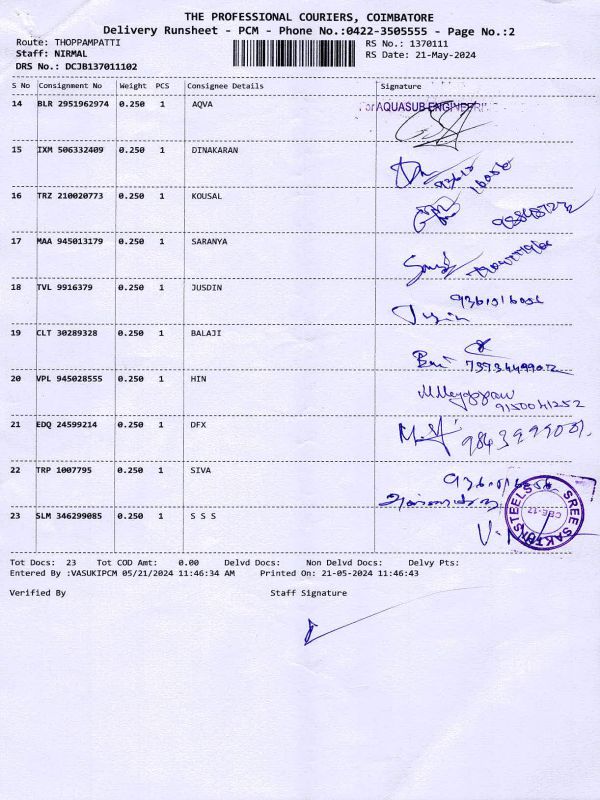 THE PROFESSIONAL COURIERS, COIMBATORE
Delivery Runsheet - PCM - Phone No.:0422-3505555 - Page No.:2
Route: THOPPAMPATTI RS No.: 1370111
Staff: NIRMAL RS Date: 21-May-2024
DRS No.: DCJB137011102
S No Consignment No Weight PCS Consignee Details Signature
14 BLR 2951962974 0.250 1 AQVA For AQUASUB ENGINEERING
15 IXM 506332409 0.250 1 DINAKARAN
16 TRZ 210020773 0.250 1 KOUSAL
17 MAA 945013179 0.250 1 SARANYA
18 TVL 9916379 0.250 1 JUSDIN
19 CLT 30289328 0.250 1 BALAJI 7373449902
20 VPL 945028555 0.250 1 HIN
9150041252
21 EDQ 24599214 0.250 1 DFX
22 TRP 1007795 0.250 1 SIVA
23 SLM 346299085 0.250 1 S S S SREE SAKTHI STEELS CBE-17
Tot Docs: 23 Tot COD Amt: 0.00 Delvd Docs: Non Delvd Docs: Delvy Pts:
Entered By :VASUKIPCM 05/21/2024 11:46:34 AM Printed On: 21-05-2024 11:46:43
Verified By Staff Signature